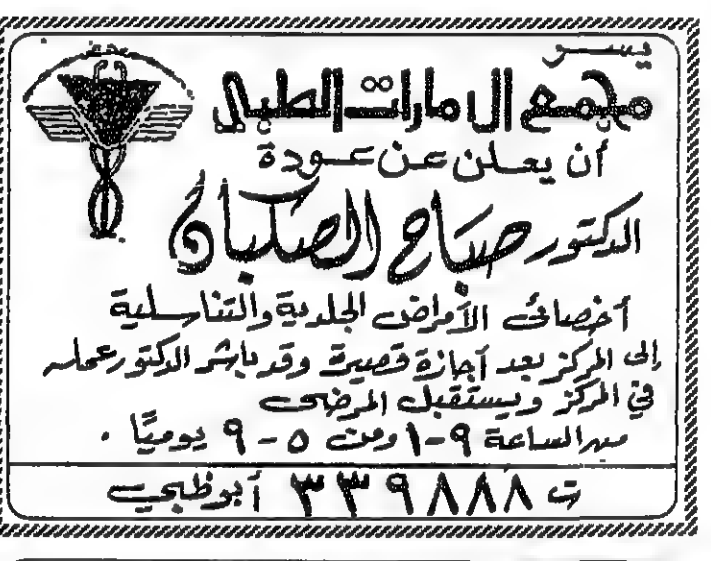 يسر
مجمع الامارات الطبي
أن يعلن عن عودة
الدكتور صباح الصكبان
أخصائي الأمراض الجلدية والتناسلية
إلى المركز بعد أجازة قصيرة وقد باشر الدكتور عمله
في المركز ويستقبل المرضى
من الساعة ٩-١ ومن ٥-٩ يوميًا .
ت ٣٣٩٨٨٨ أبوظبي